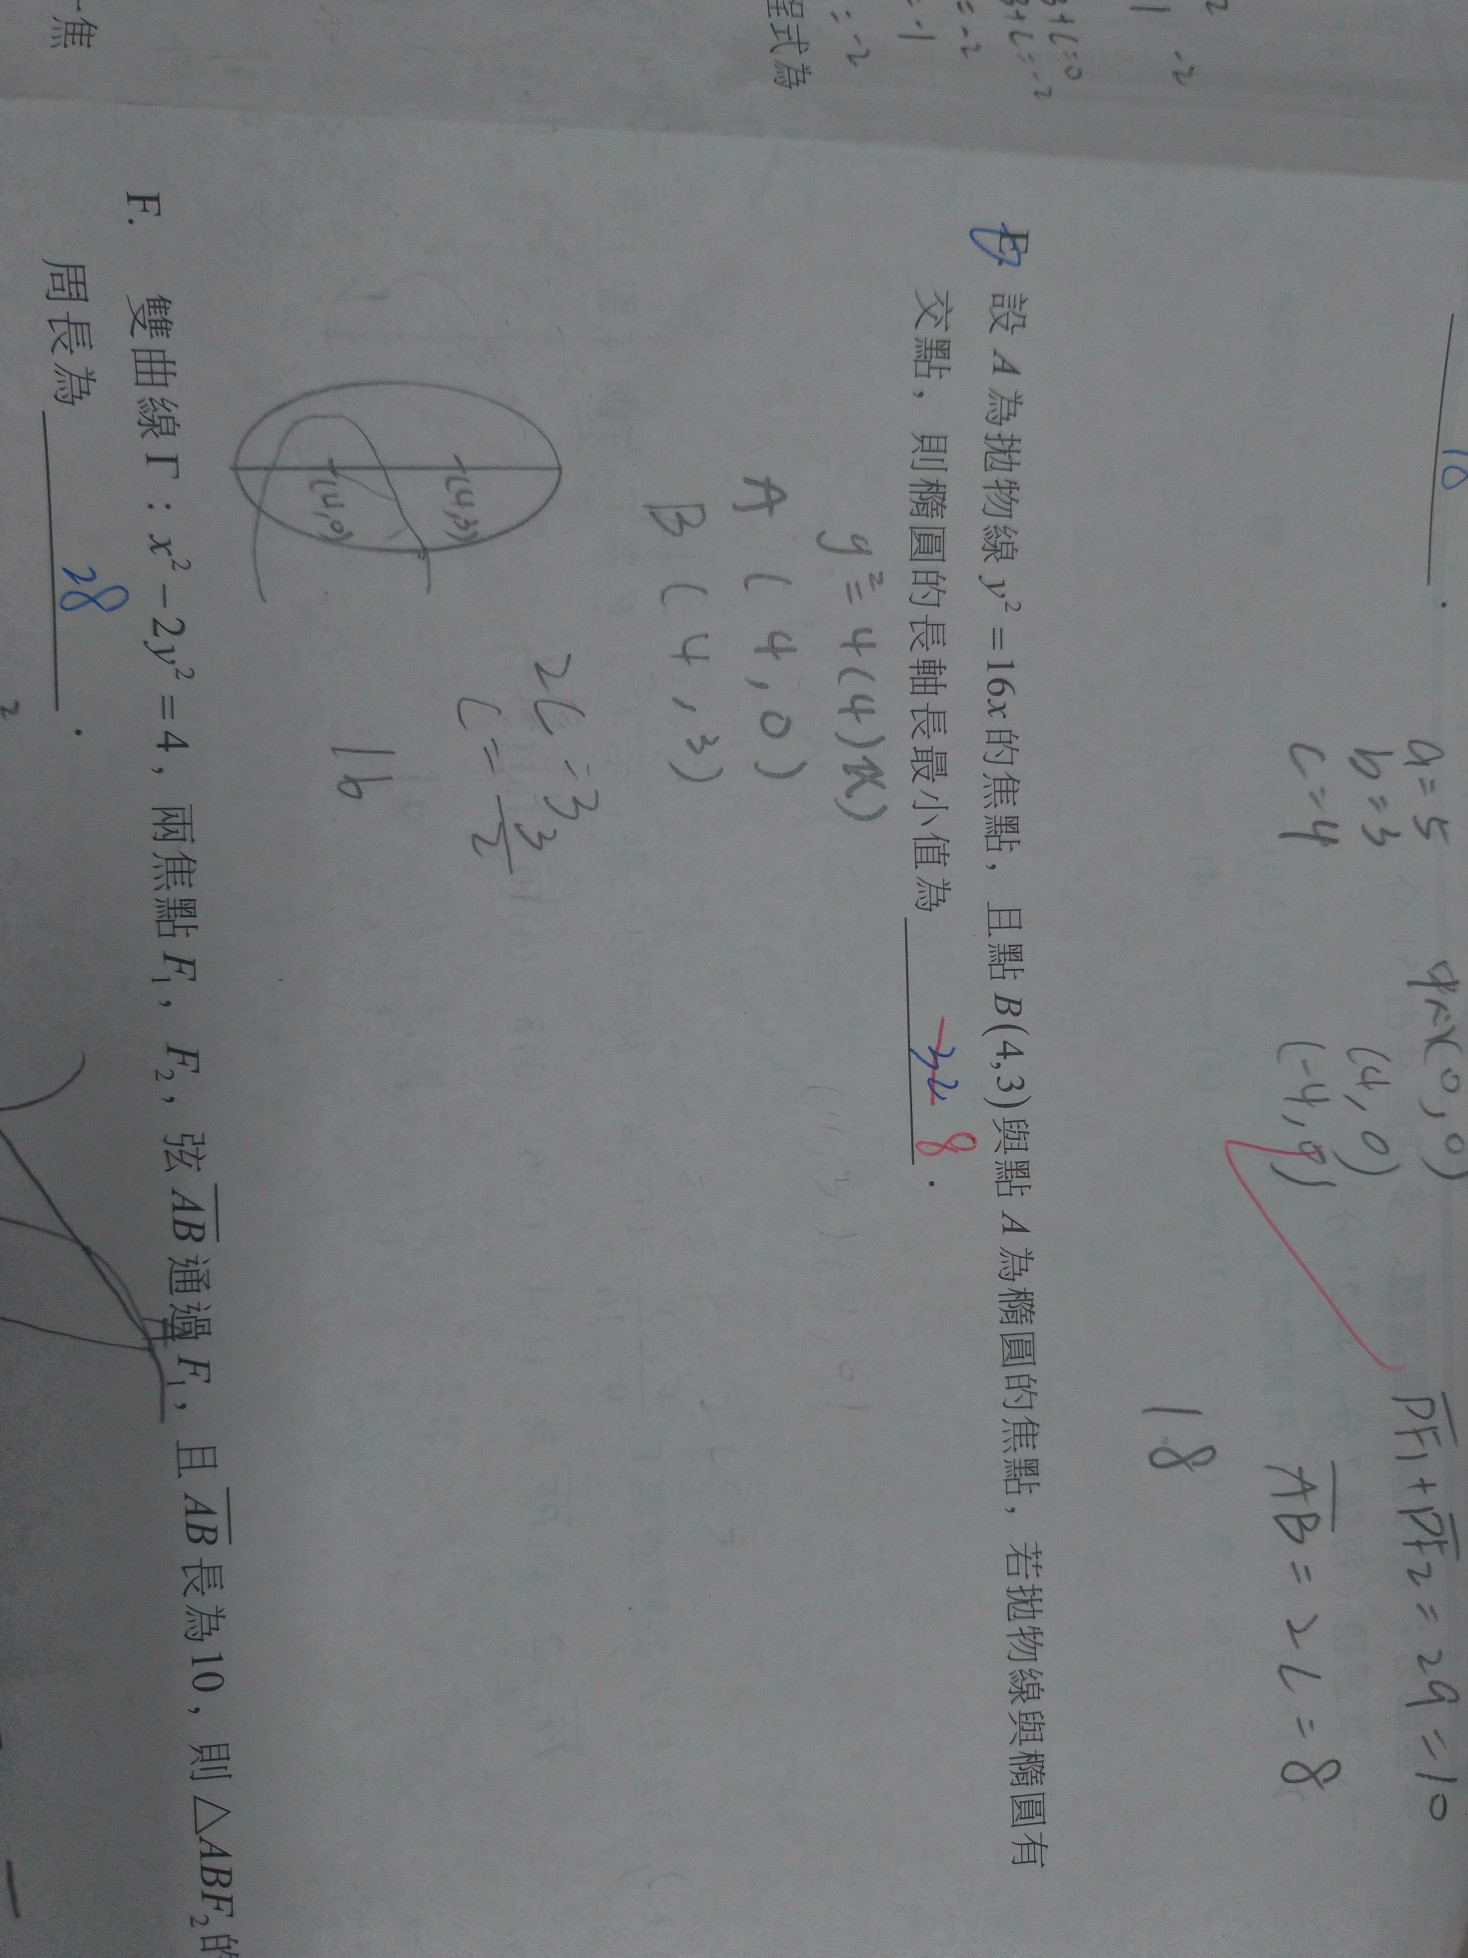 10 .
a=5
b=3
c=4
(0,0)
(4,0)
(-4,0)
PF₁+PF₂=2a=10
AB=2c=8
18
E. 設 A 為拋物線 y²=16x 的焦點，且點 B(4,3)與點 A 為橢圓的焦點，若拋物線與橢圓有
交點，則橢圓的長軸長最小值為 32 8 .
y²=4(4)x
A (4,0)
B (4,3)
2c=3
c=3/2
16
(4,3)
(4,0)
F. 雙曲線 Γ：x²−2y²=4，兩焦點 F₁，F₂，弦 AB 通過 F₁，且 AB 長為10，則△ABF₂的
周長為 28 .
2
-2
1
+c=0
+c=-2
=-2
=-1
=-2
程式為
焦